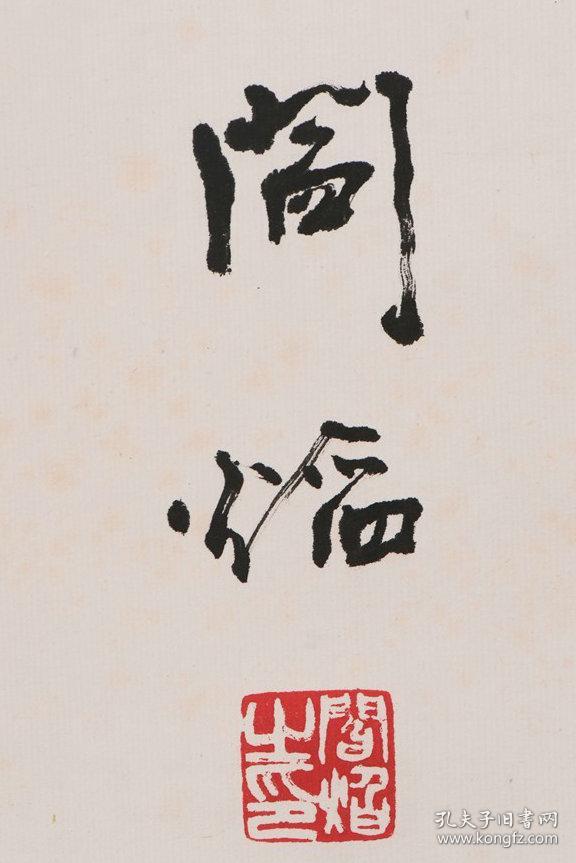 阎焰
閻焰之印
孔夫子旧书网
www.kongfz.com